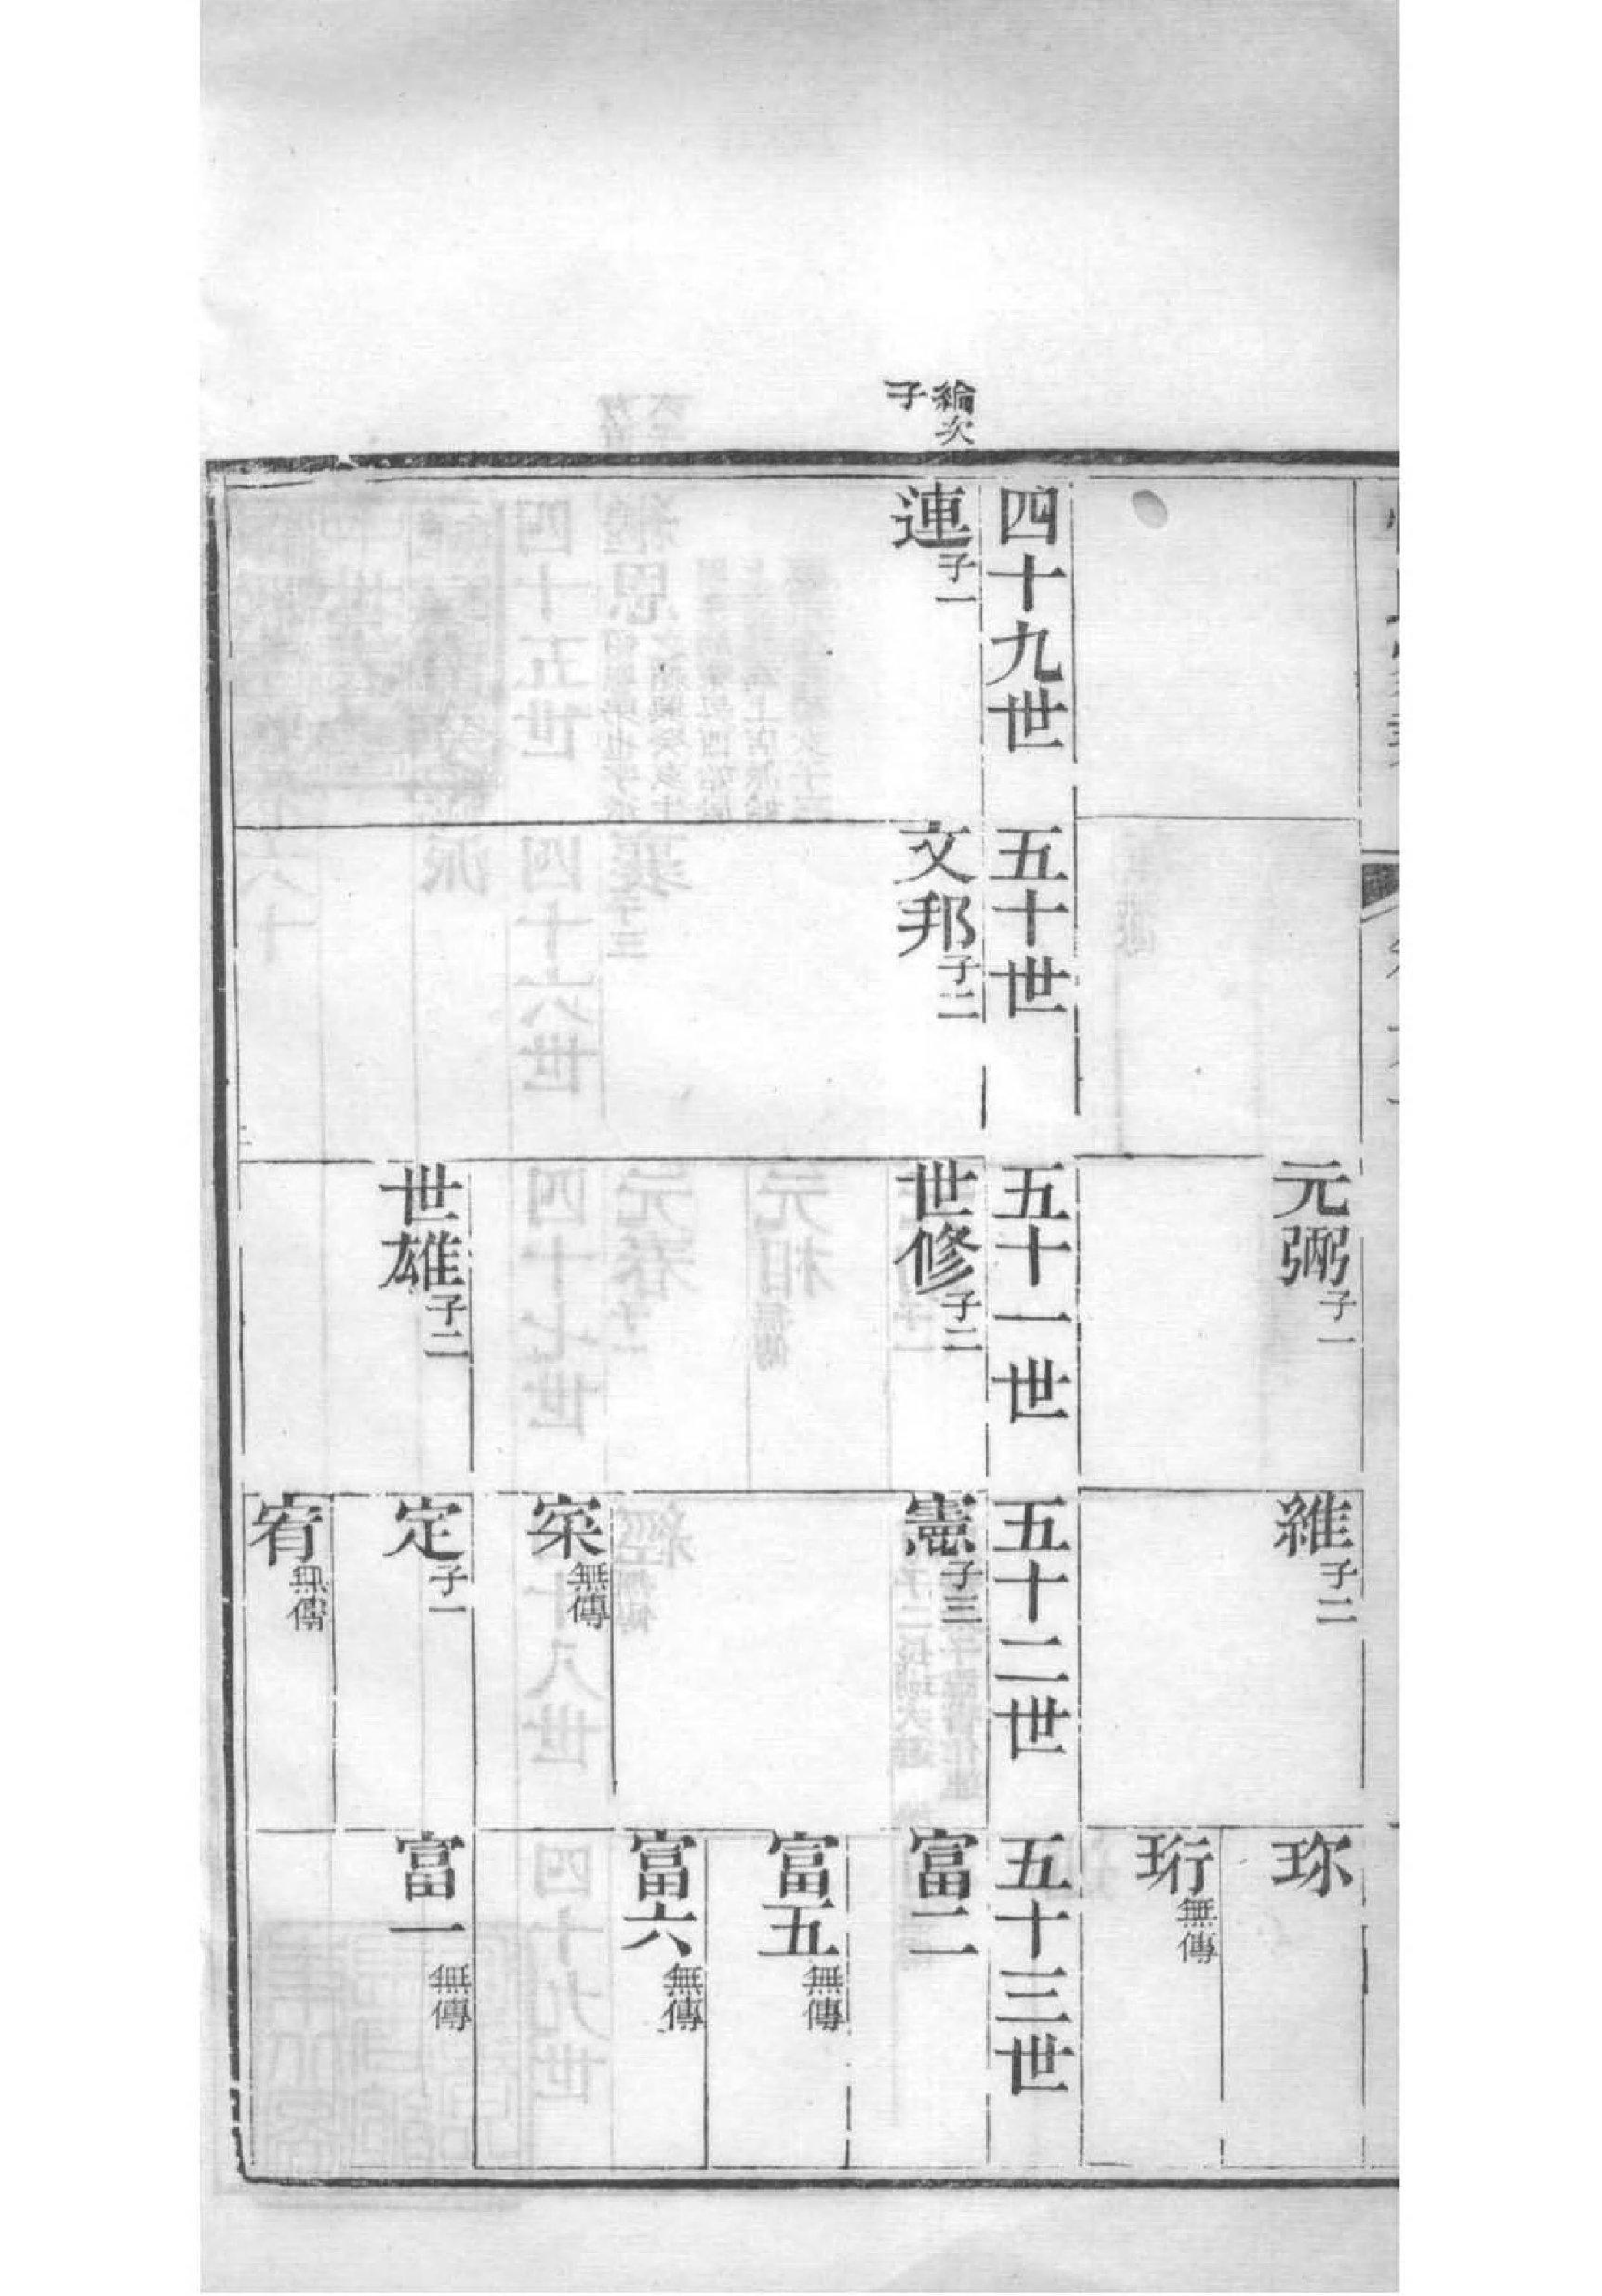 元弼子一
維子二
珎
珩無傳
四十九世
五十世
五十一世
五十二世
五十三世
綸次子
連子一
文邦子二
世修子二
憲子三
富二
富五無傳
富六無傳
寀無傳
世雄子二
定子一
富一無傳
宥無傳